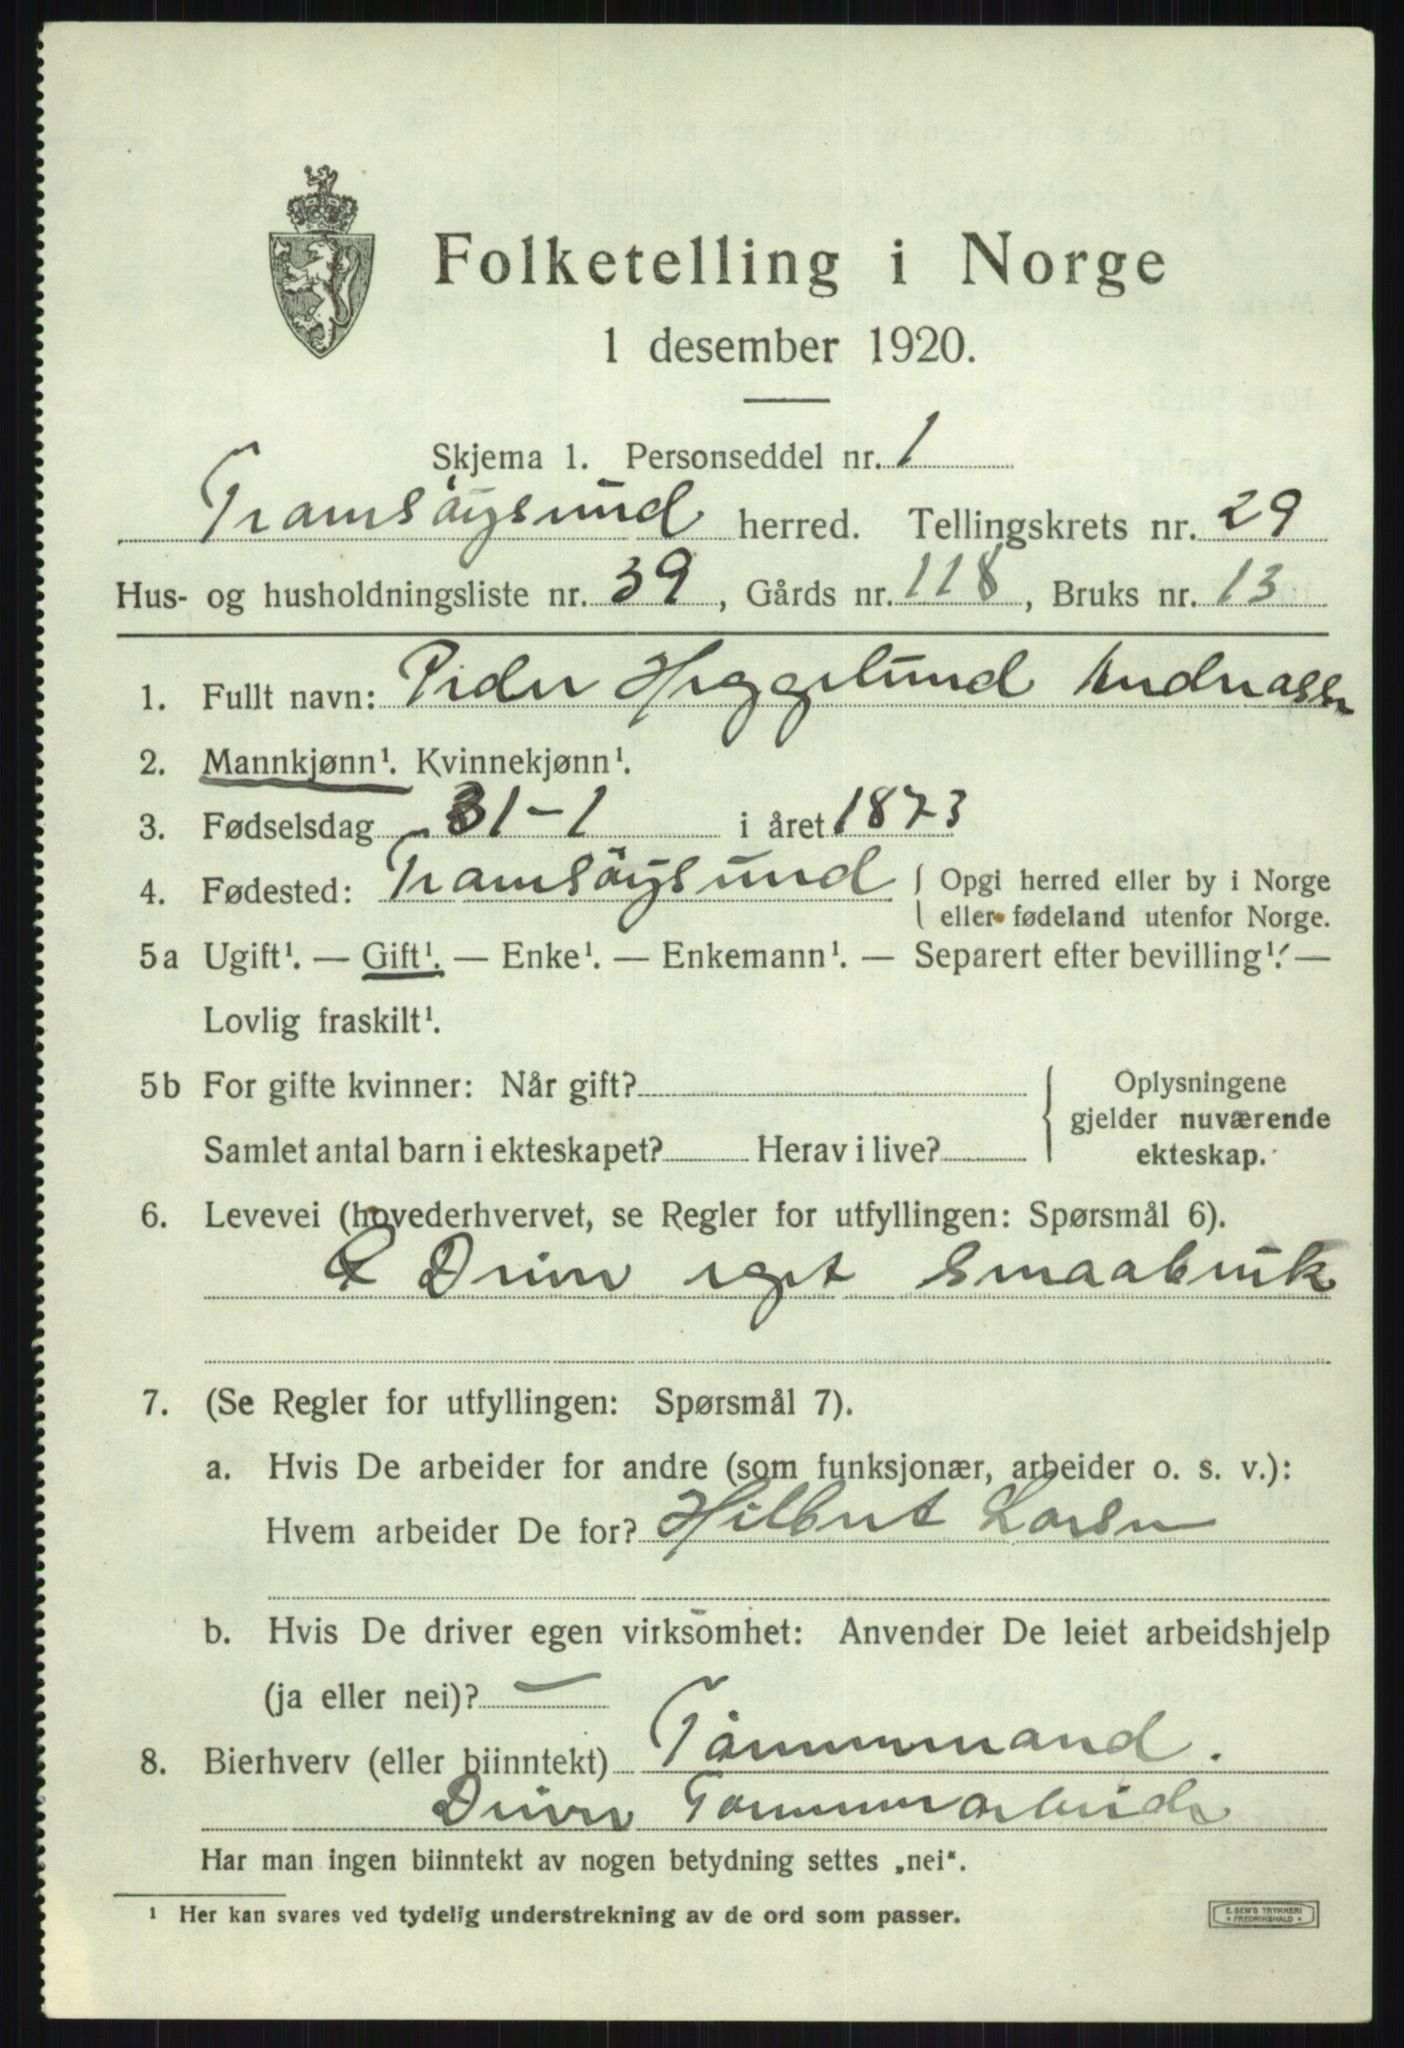 Folketelling i Norge
1 desember 1920.
Skjema 1. Personseddel nr. 1
Tromsöysund herred. Tellingskrets nr. 29
Hus- og husholdningsliste nr. 39, Gårds nr. 118, Bruks nr. 13
1. Fullt navn: Peder Heggelund Andreassen
2. Mannkjønn¹. Kvinnekjønn¹.
3. Fødselsdag 31-1 i året 1873
4. Fødested: Tromsöysund { Opgi herred eller by i Norge
eller fødeland utenfor Norge.
5a Ugift¹. — Gift¹. — Enke¹. — Enkemann¹. — Separert efter bevilling¹. —
Lovlig fraskilt¹.
5b For gifte kvinner: Når gift? { Oplysningene
gjelder nuværende
Samlet antal barn i ekteskapet? Herav i live? ekteskap.
6. Levevei (hovederhvervet, se Regler for utfyllingen: Spørsmål 6).
Driver eget Smaabruk
7. (Se Regler for utfyllingen: Spørsmål 7).
a. Hvis De arbeider for andre (som funksjonær, arbeider o. s. v.):
Hvem arbeider De for? Hilbert Larsen
b. Hvis De driver egen virksomhet: Anvender De leiet arbeidshjelp
(ja eller nei)? —
8. Bierhverv (eller biinntekt) Tömmermand.
Driver Tömmerarbeide
Har man ingen biinntekt av nogen betydning settes „nei“.
¹ Her kan svares ved tydelig understrekning av de ord som passer.
E. SEM'S TRYKKERI
FREDRIKSHALD